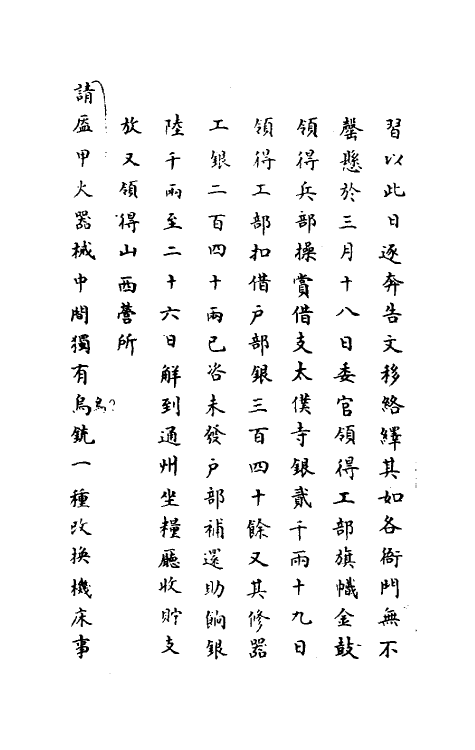 習以此日逐奔告文移絡繹其如各衙門無不
罄懸於三月十八日委官領得工部旗幟金鼓
領得兵部操賞借支太僕寺銀貳千兩十九日
領得工部扣借户部銀三百四十餘又其修器
工銀二百四十兩已咨未發户部補還助餉銀
陸千兩至二十六日解到通州坐糧廳收貯支
放又領得山西營所
請盔甲火器械中間獨有烏銃一種改换機床事
鳥?